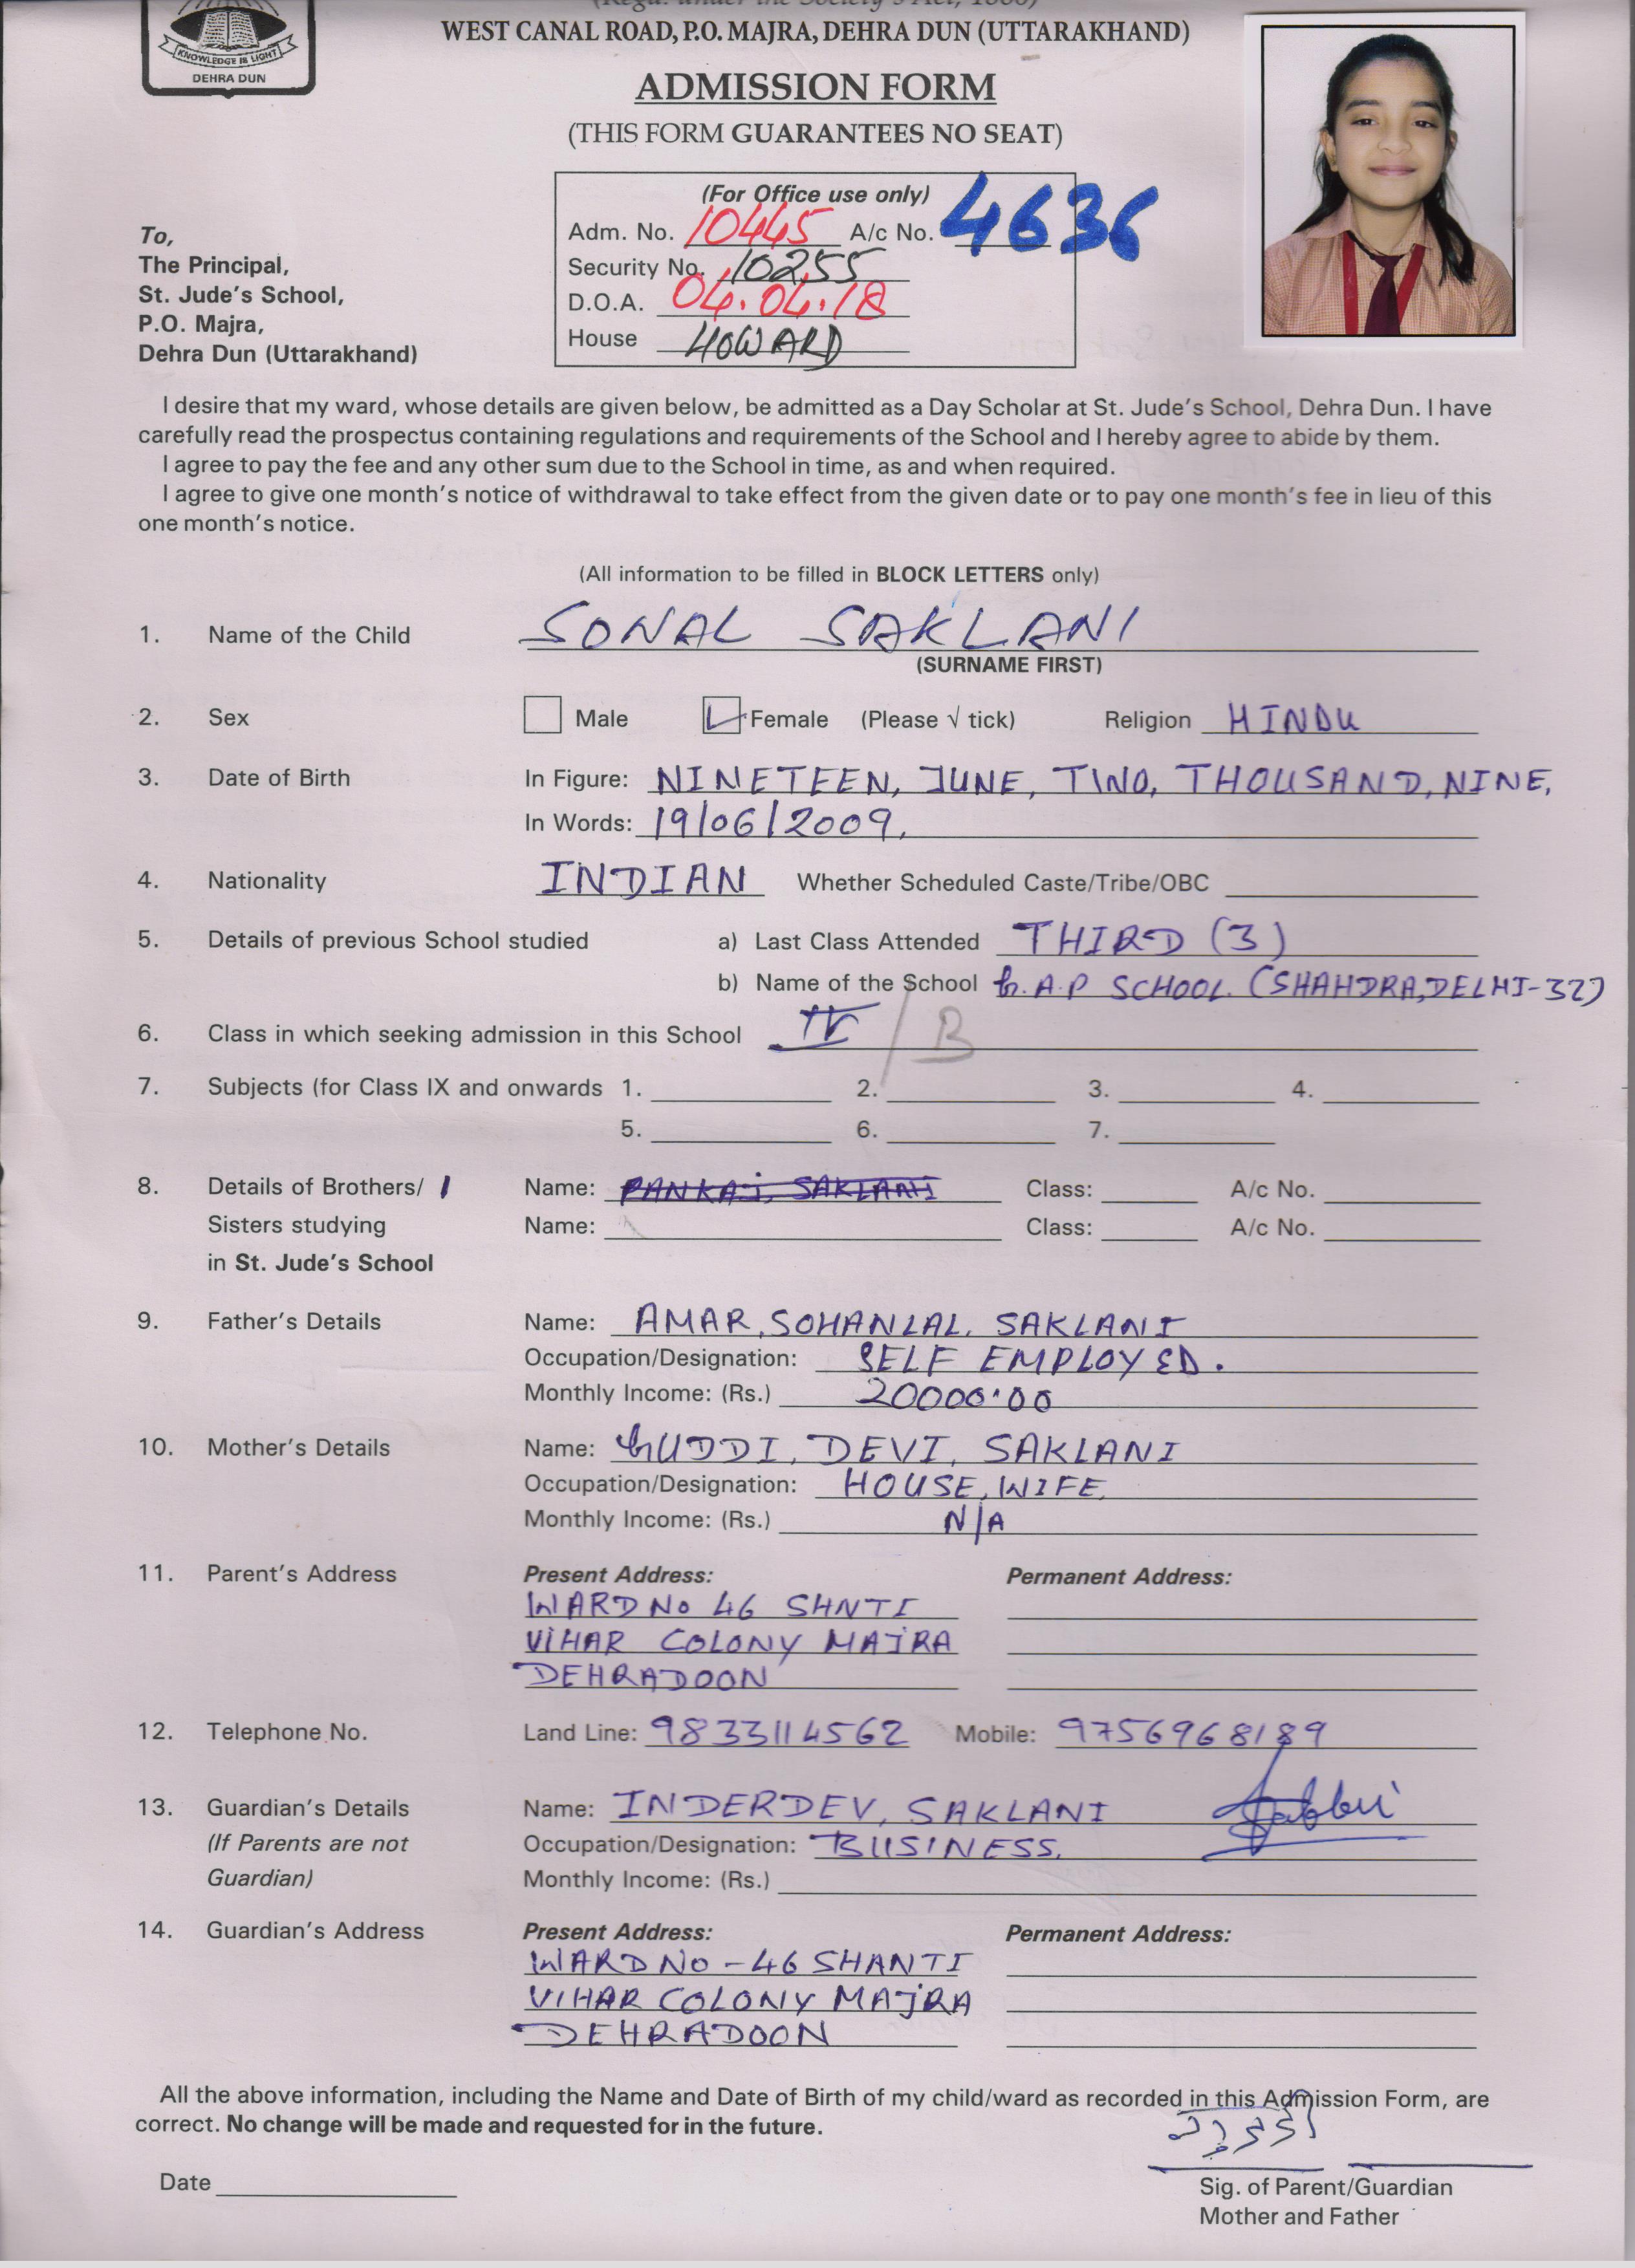 (Regd. under the Society's Act, 1860)
WEST CANAL ROAD, P.O. MAJRA, DEHRA DUN (UTTARAKHAND)
KNOWLEDGE IS LIGHT
DEHRA DUN
ADMISSION FORM
(THIS FORM GUARANTEES NO SEAT)
(For Office use only)
Adm. No. 10445 A/c No. 4636
Security No. 10255
D.O.A. 04.04.18
House HOWARD
To,
The Principal,
St. Jude's School,
P.O. Majra,
Dehra Dun (Uttarakhand)
I desire that my ward, whose details are given below, be admitted as a Day Scholar at St. Jude's School, Dehra Dun. I have
carefully read the prospectus containing regulations and requirements of the School and I hereby agree to abide by them.
I agree to pay the fee and any other sum due to the School in time, as and when required.
I agree to give one month's notice of withdrawal to take effect from the given date or to pay one month's fee in lieu of this
one month's notice.
(All information to be filled in BLOCK LETTERS only)
1. Name of the Child SONAL SAKLANI
(SURNAME FIRST)
2. Sex Male Female (Please √ tick) Religion HINDU
3. Date of Birth In Figure: NINETEEN, JUNE, TWO, THOUSAND, NINE,
In Words: 19/06/2009,
4. Nationality INDIAN Whether Scheduled Caste/Tribe/OBC
5. Details of previous School studied a) Last Class Attended THIRD (3)
b) Name of the School G.A.P SCHOOL. (SHAHDRA, DELHI-32)
6. Class in which seeking admission in this School IV / B
7. Subjects (for Class IX and onwards 1. 2. 3. 4.
5. 6. 7.
8. Details of Brothers/ Name: PANKAJ, SAKLANI Class: A/c No.
Sisters studying Name: Class: A/c No.
in St. Jude's School
9. Father's Details Name: AMAR, SOHANLAL, SAKLANI
Occupation/Designation: SELF EMPLOYED.
Monthly Income: (Rs.) 20000.00
10. Mother's Details Name: GUDDI, DEVI, SAKLANI
Occupation/Designation: HOUSE, WIFE,
Monthly Income: (Rs.) N/A
11. Parent's Address Present Address: Permanent Address:
WARD No 46 SHNTI
VIHAR COLONY MAJRA
DEHRADOON
12. Telephone No. Land Line: 9833114562 Mobile: 9756968189
13. Guardian's Details Name: INDERDEV, SAKLANI
(If Parents are not Occupation/Designation: BUSINESS,
Guardian) Monthly Income: (Rs.)
14. Guardian's Address Present Address: Permanent Address:
WARD No - 46 SHANTI
VIHAR COLONY MAJRA
DEHRADOON
All the above information, including the Name and Date of Birth of my child/ward as recorded in this Admission Form, are
correct. No change will be made and requested for in the future.
Date
Sig. of Parent/Guardian
Mother and Father